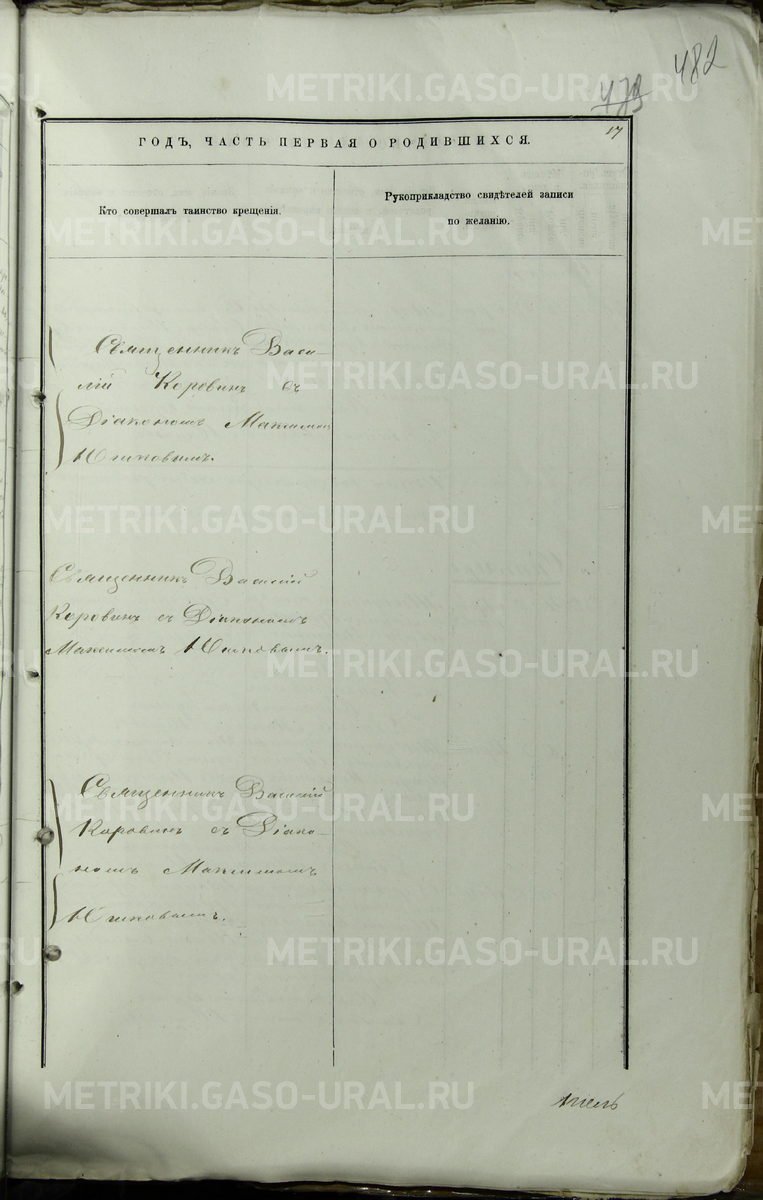 482
479
17
ГОДЪ, ЧАСТЬ ПЕРВАЯ О РОДИВШИХСЯ.
Кто совершалъ таинство крещенія.
Рукоприкладство свидѣтелей записи
по желанію.
Священникъ Васи-
лій Коровинъ съ
Діакономъ Максимом
Юшковымъ.
Священникъ Василій
Коровинъ съ Діакономъ
Максимомъ Юшковымъ.
Священникъ Василій
Коровинъ съ Діако-
номъ Максимомъ
Юшковымъ.
METRIKI.GASO-URAL.RU
METRIKI.GASO-URAL.RU
METRIKI.GASO-URAL.RU
METRIKI.GASO-URAL.RU
METRIKI.GASO-URAL.RU
METRIKI.GASO-URAL.RU
METRIKI.GASO-URAL.RU
METRIKI.GASO-URAL.RU